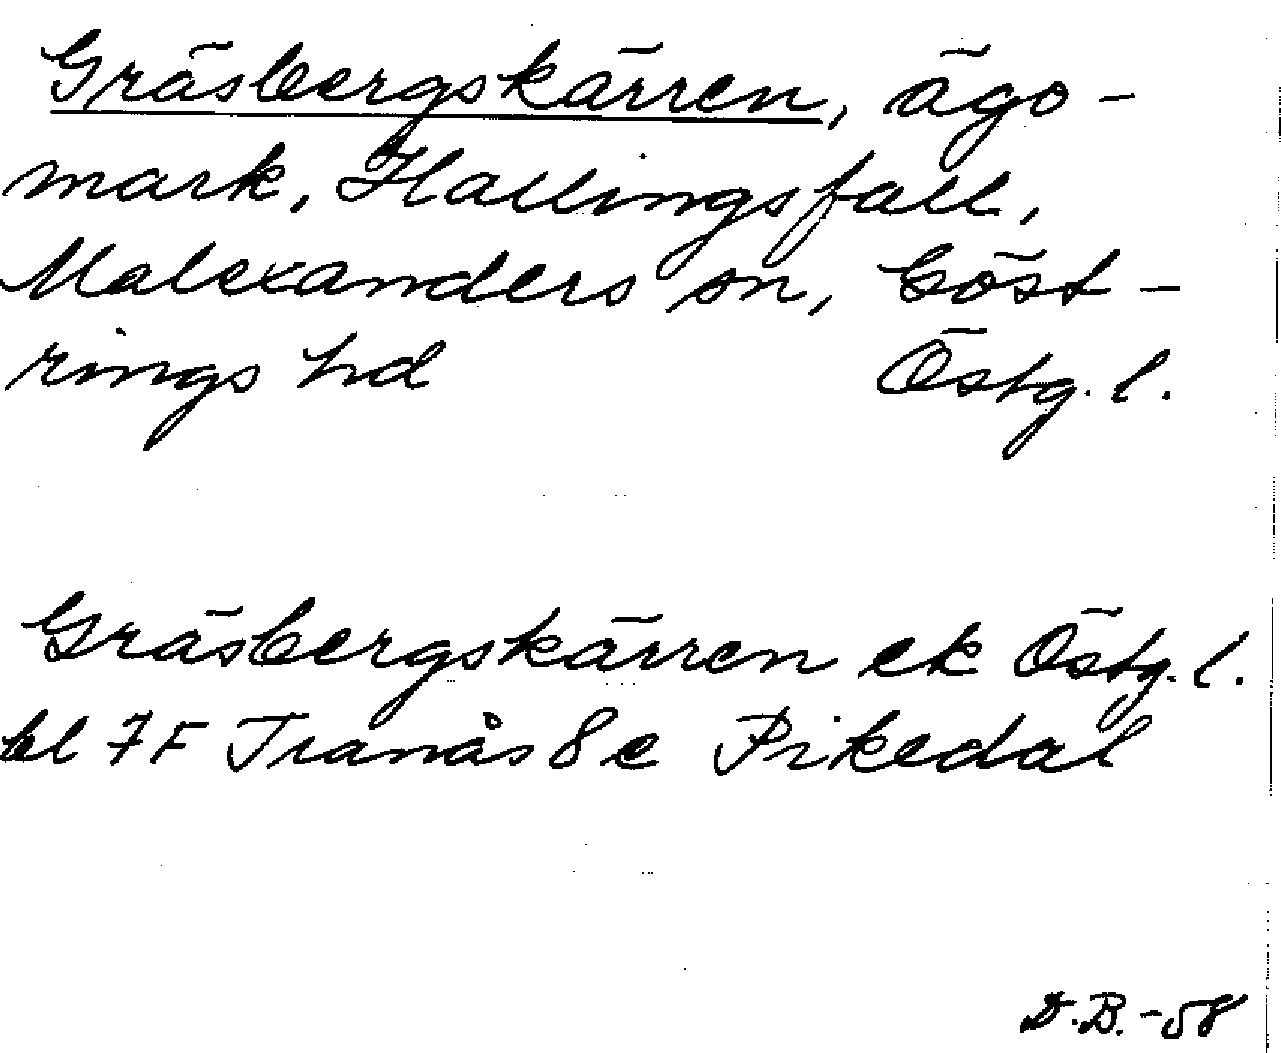 Gräsbergskärren, ägo-
mark, Hallingsfall,
Malexanders sn, Göst-
rings hd Östg. l.
Gräsbergskärren ek Östg. l.
bl 7F Tranås 8e Pikedal
D.B.-58